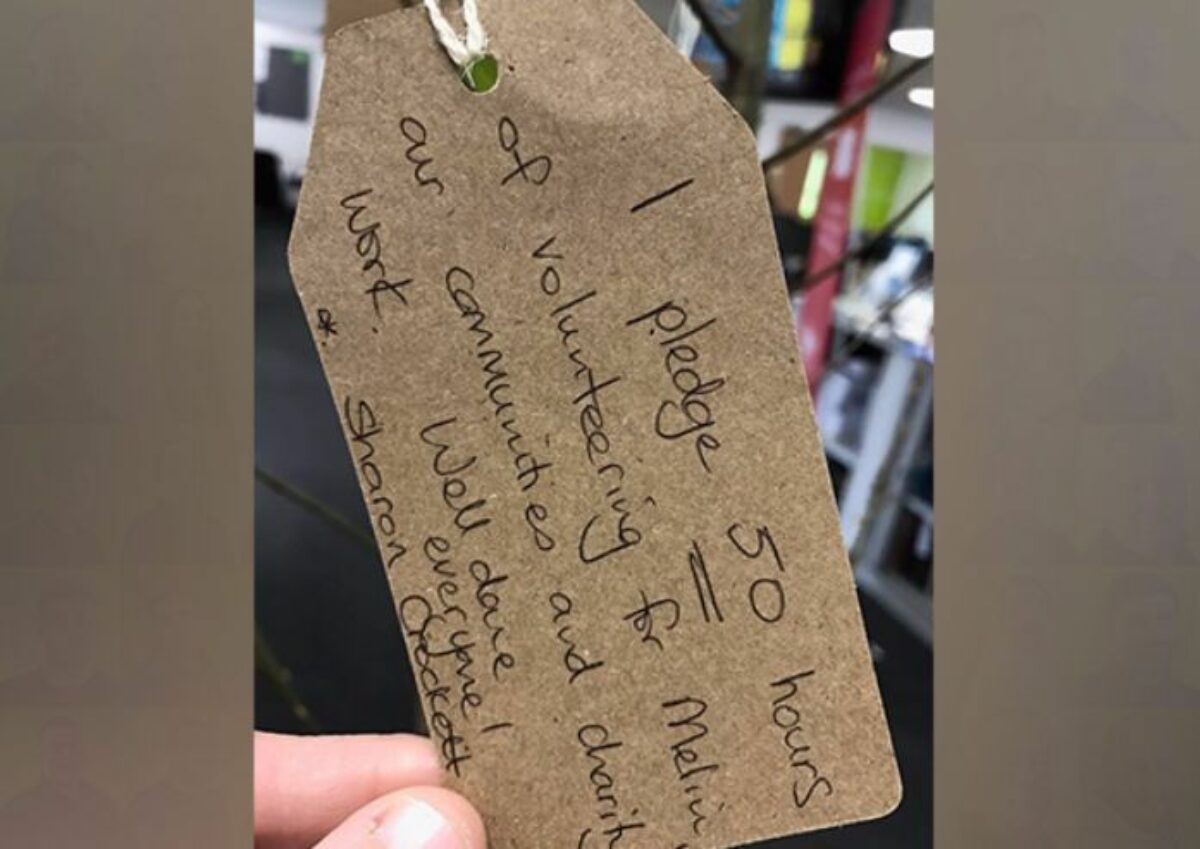 I pledge 50 hours
of volunteering for Melin,
our communities and charity
work. Well done
everyone!
Sharon Crockett